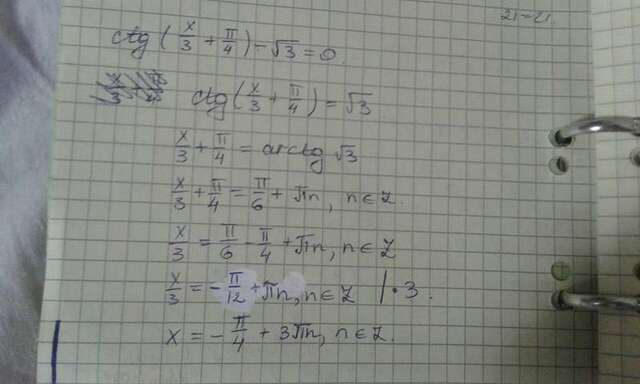 ctg (x/3 + π/4) - √3 = 0.
ctg (x/3 + π/4) = √3
x/3 + π/4 = arcctg √3
x/3 + π/4 = π/6 + πn, n ∈ Z.
x/3 = π/6 - π/4 + πn, n ∈ Z
x/3 = - π/12 + πn, n ∈ Z | · 3.
x = - π/4 + 3πn, n ∈ Z.